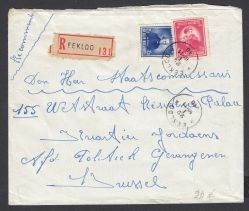 Recommandé
R EEKLOO
131
Den Heer Staatscommissaris
155 Wetstraat Résidence Palace
Quartier Jordaens
Afd Politiek Gevangenen
Brussel